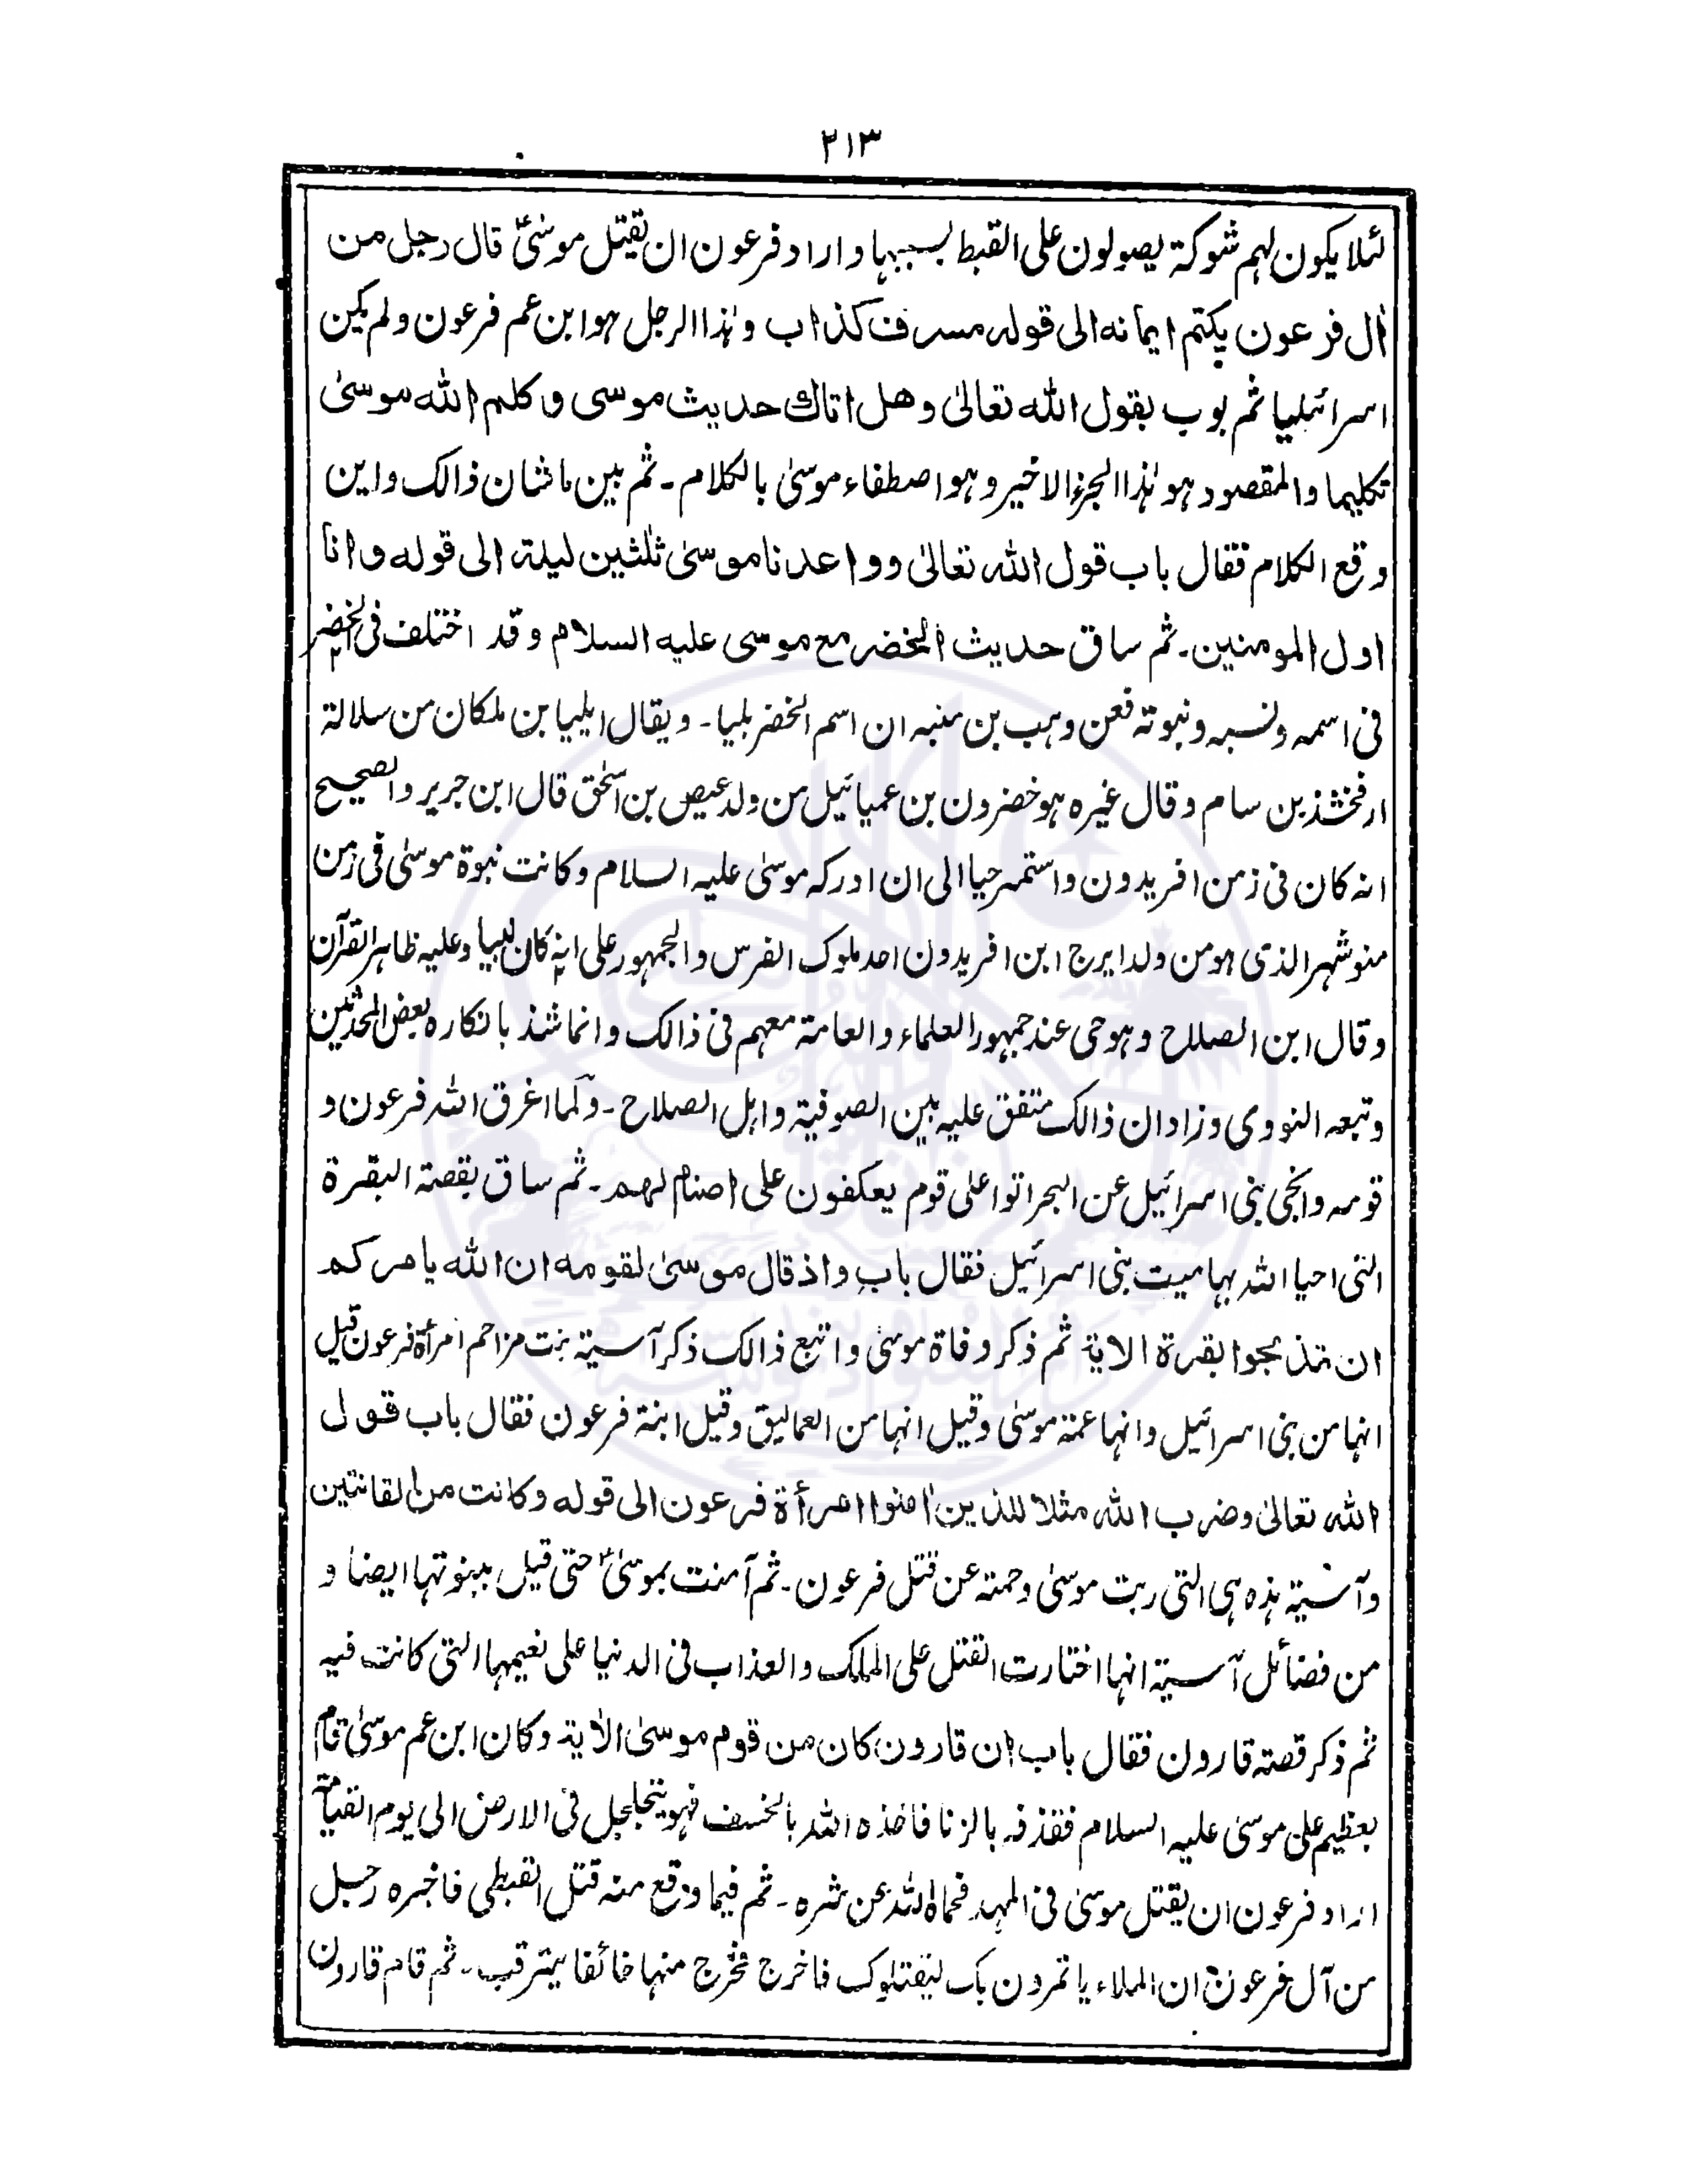 ۲۱۳
لئلا یکون لہم شوکۃ یصولون علی القبط بسببہا و اراد فرعون ان یقتل موسیٰؑ قال رجل من
اٰل فرعون یکتم ایمانہ الی قولہ مسرف کذاب وہٰذا الرجل ہو ابن عم فرعون ولم یکن
اسرائیلیا ثم بوب بقول اللہ تعالیٰ وھل اتاك حدیث موسی و کلم اللہ موسیٰ
تکلیما والمقصود ہو ہٰذا الجزء الاخیر وہو اصطفاء موسیٰ بالکلام۔ ثم بین ما شان ذالک واین
وقع الکلام فقال باب قول اللہ تعالیٰ وواعدنا موسیٰ ثلٰثین لیلۃ الی قولہ وانا
اول المومنین۔ ثم ساق حدیث الخضر مع موسی علیہ السلام وقد اختلف فی الخضر
فی اسمہ ونسبہ ونبوتہ فعن وہب بن منبہ ان اسم الخضر بلیا۔ ویقال ایلیا بن ملکان من سلالۃ
ارفخشذ بن سام وقال غیرہ ہو خضرون بن عمیائیل من ولد عیص بن اسحٰق قال ابن جریر والصحیح
انہ کان فی زمن افریدون واستمر حیا الی ان ادرکہ موسیٰ علیہ السلام وکانت نبوۃ موسیٰ فی زمن
منوشہر الذی ہو من ولد ایرج ابن افریدون احد ملوک الفرس والجمہور علی انہ کان نبیا وعلیہ ظاہر القرآن
وقال ابن الصلاح وہو حی عند جمہور العلماء والعامۃ معہم فی ذالک وانما شذ بانکارہ بعض المحدثین
وتبعہ النووی وزاد ان ذالک متفق علیہ بین الصوفیۃ واہل الصلاح۔ ولما اغرق اللہ فرعون و
قومہ وانجی بنی اسرائیل عن البحر اتوا علی قوم یعکفون علی اصنام لہم۔ ثم ساق بقصۃ البقرۃ
التی احیا اللہ بہا میت بنی اسرائیل فقال باب واذ قال موسیٰ لقومہ ان اللہ یامرکم
ان تذبحوا بقرۃ الایۃ ثم ذکر وفاۃ موسیٰ واتبع ذالک ذکر آسیۃ بنت مزاحم امرأۃ فرعون قیل
انہا من بنی اسرائیل وانہا عمۃ موسیٰ وقیل انہا من العمالیق وقیل ابنۃ فرعون فقال باب قول
اللہ تعالیٰ وضرب اللہ مثلا للذین اٰمنوا امرأۃ فرعون الی قولہ وکانت من القانتین
وآسیۃ ہذہ ہی التی ربت موسیٰ وحمتہ عن قتل فرعون۔ ثم آمنت بموسیٰؑ حتی قیل بنبوتہا ایضا و
من فضائل آسیۃ انہا اختارت القتل علی الملک والعذاب فی الدنیا علی نعیمہا التی کانت فیہ
ثم ذکر قصۃ قارون فقال باب ان قارون کان من قوم موسیٰ الاٰیۃ وکان ابن عم موسیٰ قام
بعظیم علی موسیٰ علیہ السلام فقذفہ بالزنا فاخذہ اللہ بالخسف فہو یتجلجل فی الارض الی یوم القیامۃ
اراد فرعون ان یقتل موسیٰ فی المہد فحماہ اللہ عن شرہ۔ ثم فیما وقع منہ قتل القبطی فاخبرہ رجل
من آل فرعون ان الملاء یاتمرون بک لیقتلوک فاخرج فخرج منہا خائفا یترقب۔ ثم قام قارون